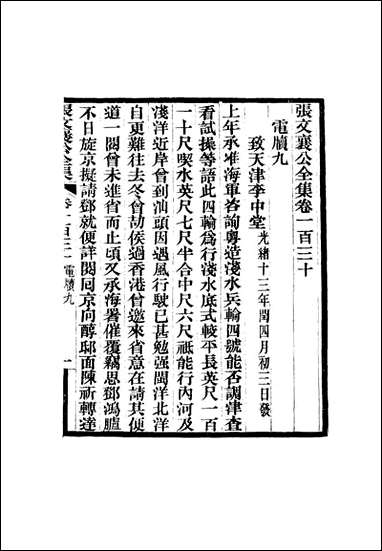 張文襄公全集卷一百三十
電牘九
致天津李中堂 光緒十三年閏四月初三日發
上年承准海軍咨詢粵造淺水兵輪四號能否調津查
看試操等語此四輪為行淺水底式較平長英尺一百
一十尺喫水英尺七尺半合中尺六尺祇能行內河及
淺洋近岸曾到汕頭因遇風行駛已甚勉強閩洋北洋
自更難往去冬曾劼侯過香港曾邀來省意在請其便
道一閱曾未進省而止頃又承海署催覆竊思鄧鴻臚
不日旋京擬請鄧就便詳閱囘京向醇邸面陳祈轉達
張文襄公全集 卷一百三十 電牘九 一